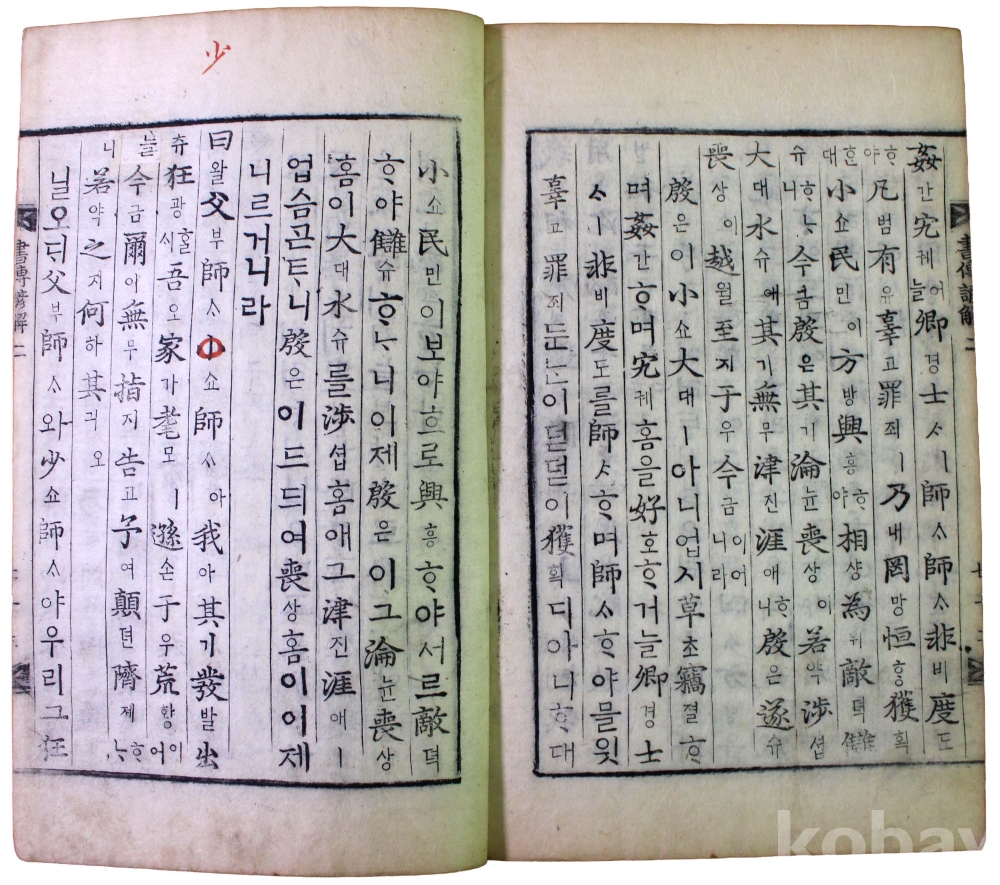 姦간宄궤어늘卿경士ᄉㅣ師ᄉ師ᄉ非비度도
ᄒᆞ야凡범有유辜고罪죄ㅣ乃내罔망恒ᄒᆼ獲획
ᄒᆞᆫ대小쇼民민이方방興흥ᄒᆞ야相샹為위敵뎍讎
슈ᄒᆞᄂᆞ니今금殷은其기淪륜喪상이若약涉셥
大대水슈애其기無무津진涯애ᄒᆞ니殷은遂슈
喪상이越월至지于우今금이어니라
殷은이小쇼大대ㅣ아니업시草초竊졀ᄒᆞ
며姦간ᄒᆞ며宄궤홈을好호ᄒᆞ거늘卿경士
ᄉㅣ非비度도를師ᄉᄒᆞ며師ᄉᄒᆞ야믈읫
辜고罪죄둔ᄂᆞᆫ이덛덛이獲획디아니ᄒᆞᆫ대
書傳諺解 二
少
小쇼民민이보야ᄒᆞ로興흥ᄒᆞ야서르敵뎍
ᄒᆞ야讎슈ᄒᆞᄂᆞ니이제殷은이그淪륜喪상
홈이大대水슈를涉셥홈애그津진涯애ㅣ
업슴ᄀᆞᆮᄐᆞ니殷은이드듸여喪상홈이이제
니르거니라
曰왈父부師ᄉ쇼師ᄉ아我아其기發발出
츄狂광ᄒᆞᆯ시吾오家가耄모ㅣ遜손于우荒황이어
늘今금爾이無무指지告고予여顚뎐隮졔ᄒᆞᄂᆞ
니若약之지何하其긔오
닐오ᄃᆡ父부師ᄉ와少쇼師ᄉ야우리그狂
書傳諺解 二
kobay